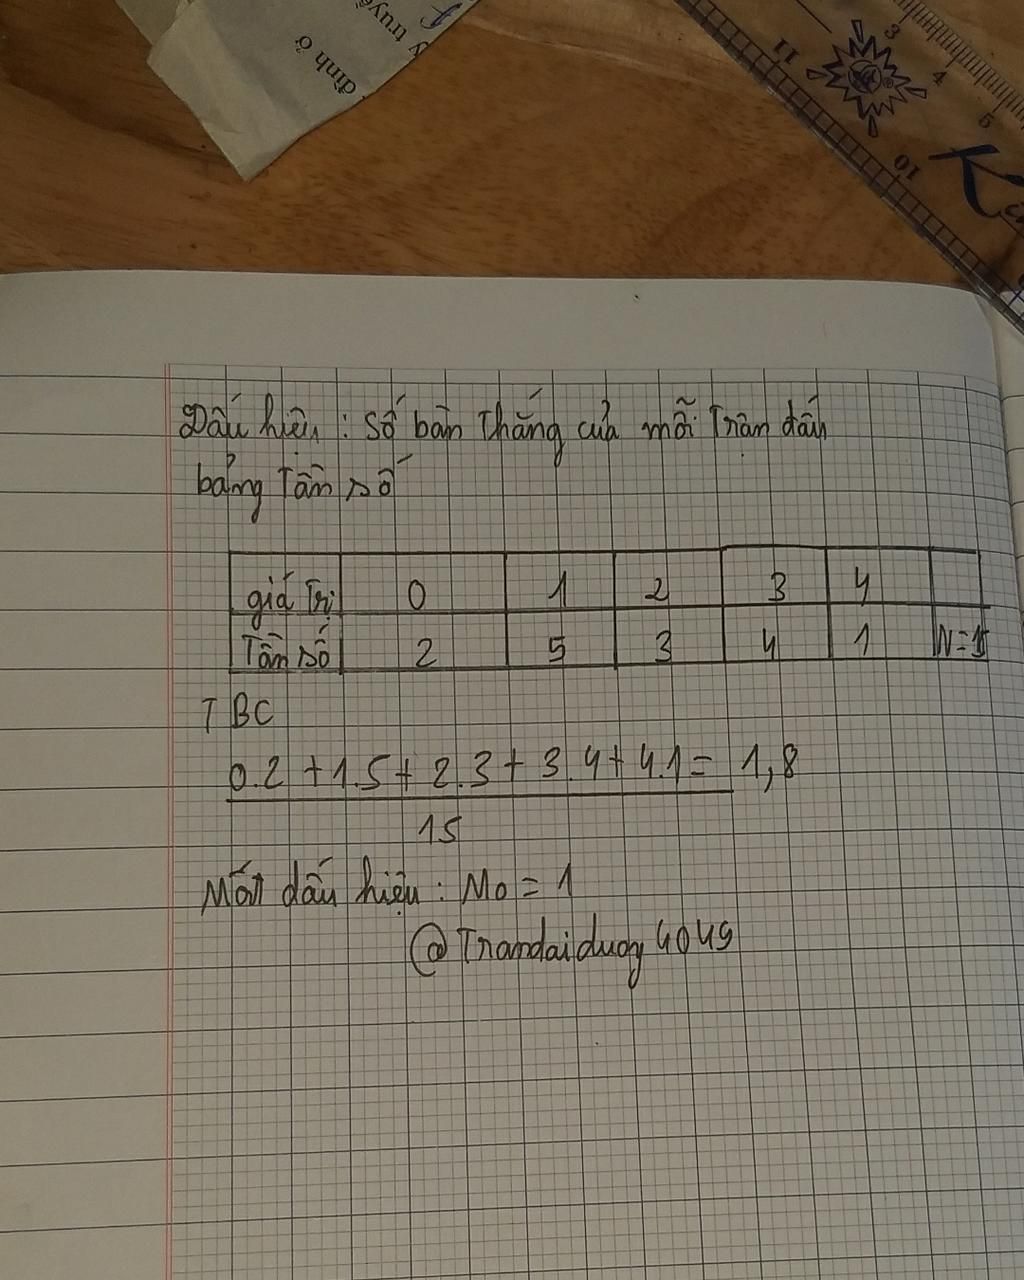 đình ở
y truyề
11
10
3
4
5
K
Dấu hiệu : số bàn thắng của mỗi trận đấu
bảng tần số
giá trị 0 1 2 3 4
Tần số 2 5 3 4 1 N=15
TBC
0.2 + 1.5 + 2.3 + 3.4 + 4.1 = 1,8
15
Mốt dấu hiệu : Mo = 1
@Trandaiduong4049